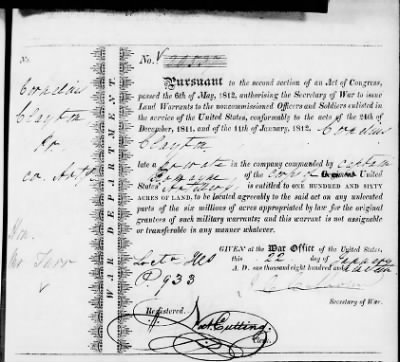 No.
No.
Cornelius
Clayton
Pr
co. Arty
WAR DEPARTMENT.
Pursuant to the second section of an Act of Congress,
passed the 6th of May, 1812, authorising the Secretary of War to issue
Land Warrants to the noncommissioned Officers and Soldiers enlisted in
the service of the United States, conformably to the acts of the 24th of
December, 1811, and of the 11th of January, 1812, Cornelius
Clayton
late a Private in the company commanded by Captain
of the Corps of United
States Artillery is entitled to ONE HUNDRED AND SIXTY
ACRES OF LAND, to be located agreeably to the said act on any unlocated
parts of the six millions of acres appropriated by law for the original
grantees of such military warrants; and this warrant is not assignable
or transferable in any manner whatever.
GIVEN at the War Office of the United States,
this 22 day of
A. D. one thousand eight hundred and
933
Secretary of War.
Registered.
Nat. Cutting.
Clerk.